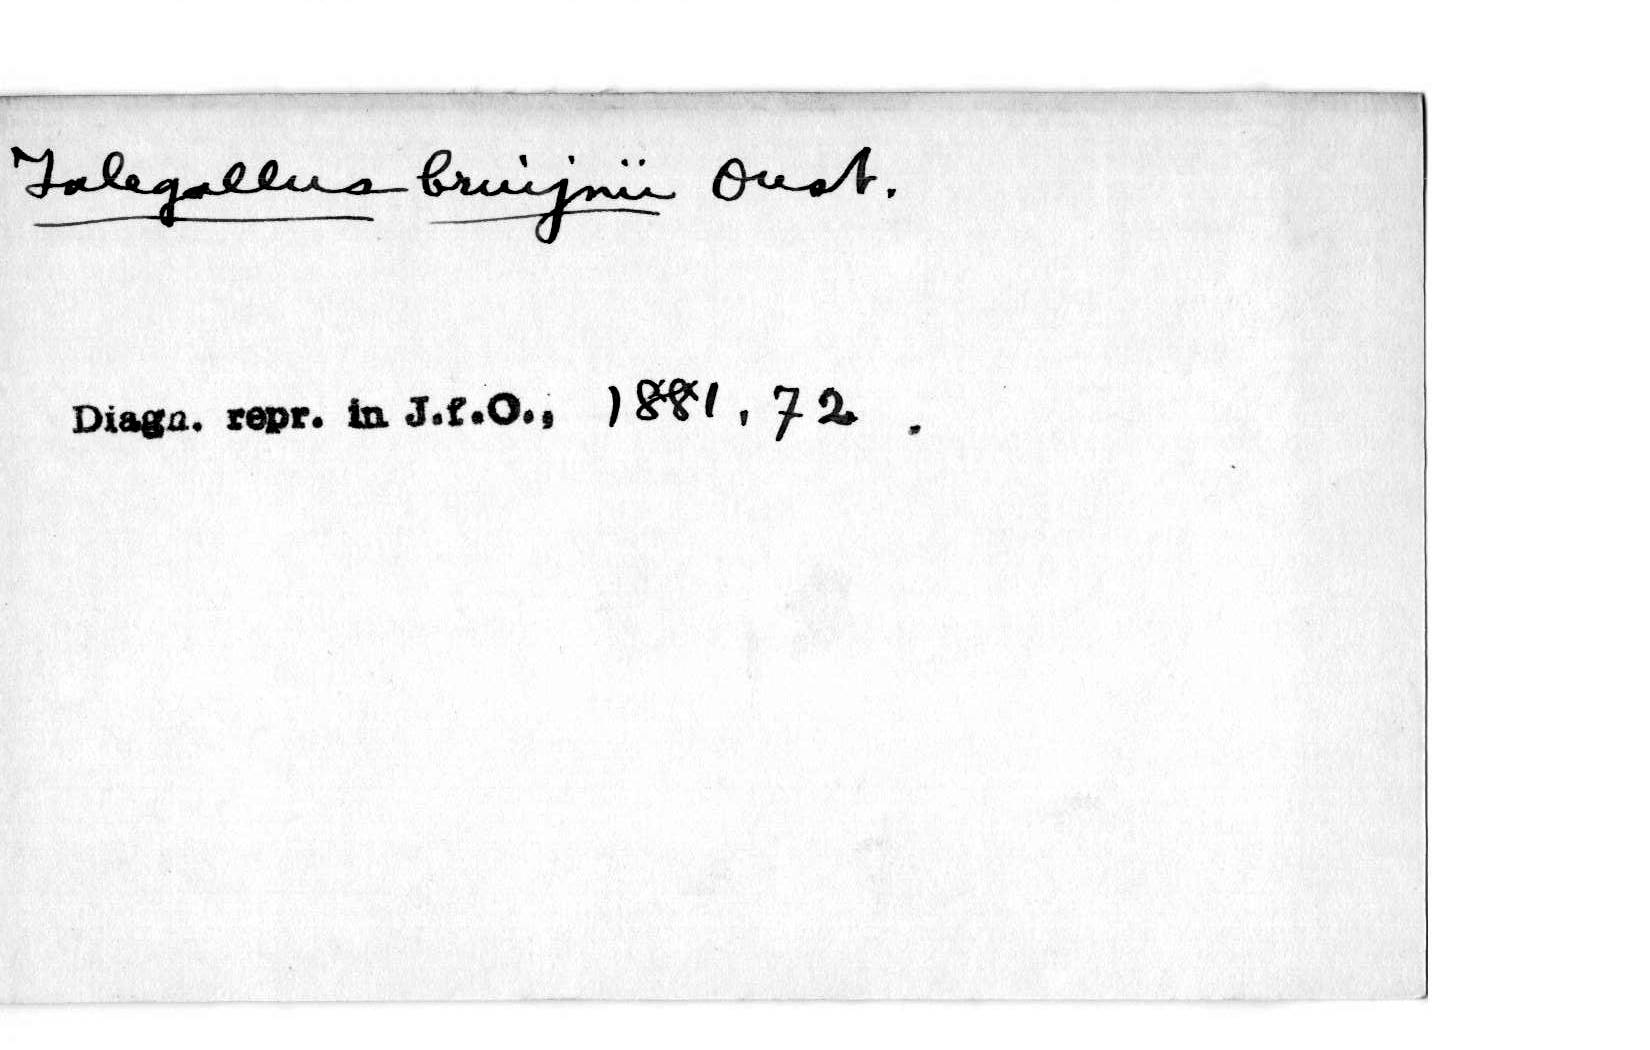 Talegallus bruijnii Oust.
Diagn. repr. in J.f.O., 1881, 72 .